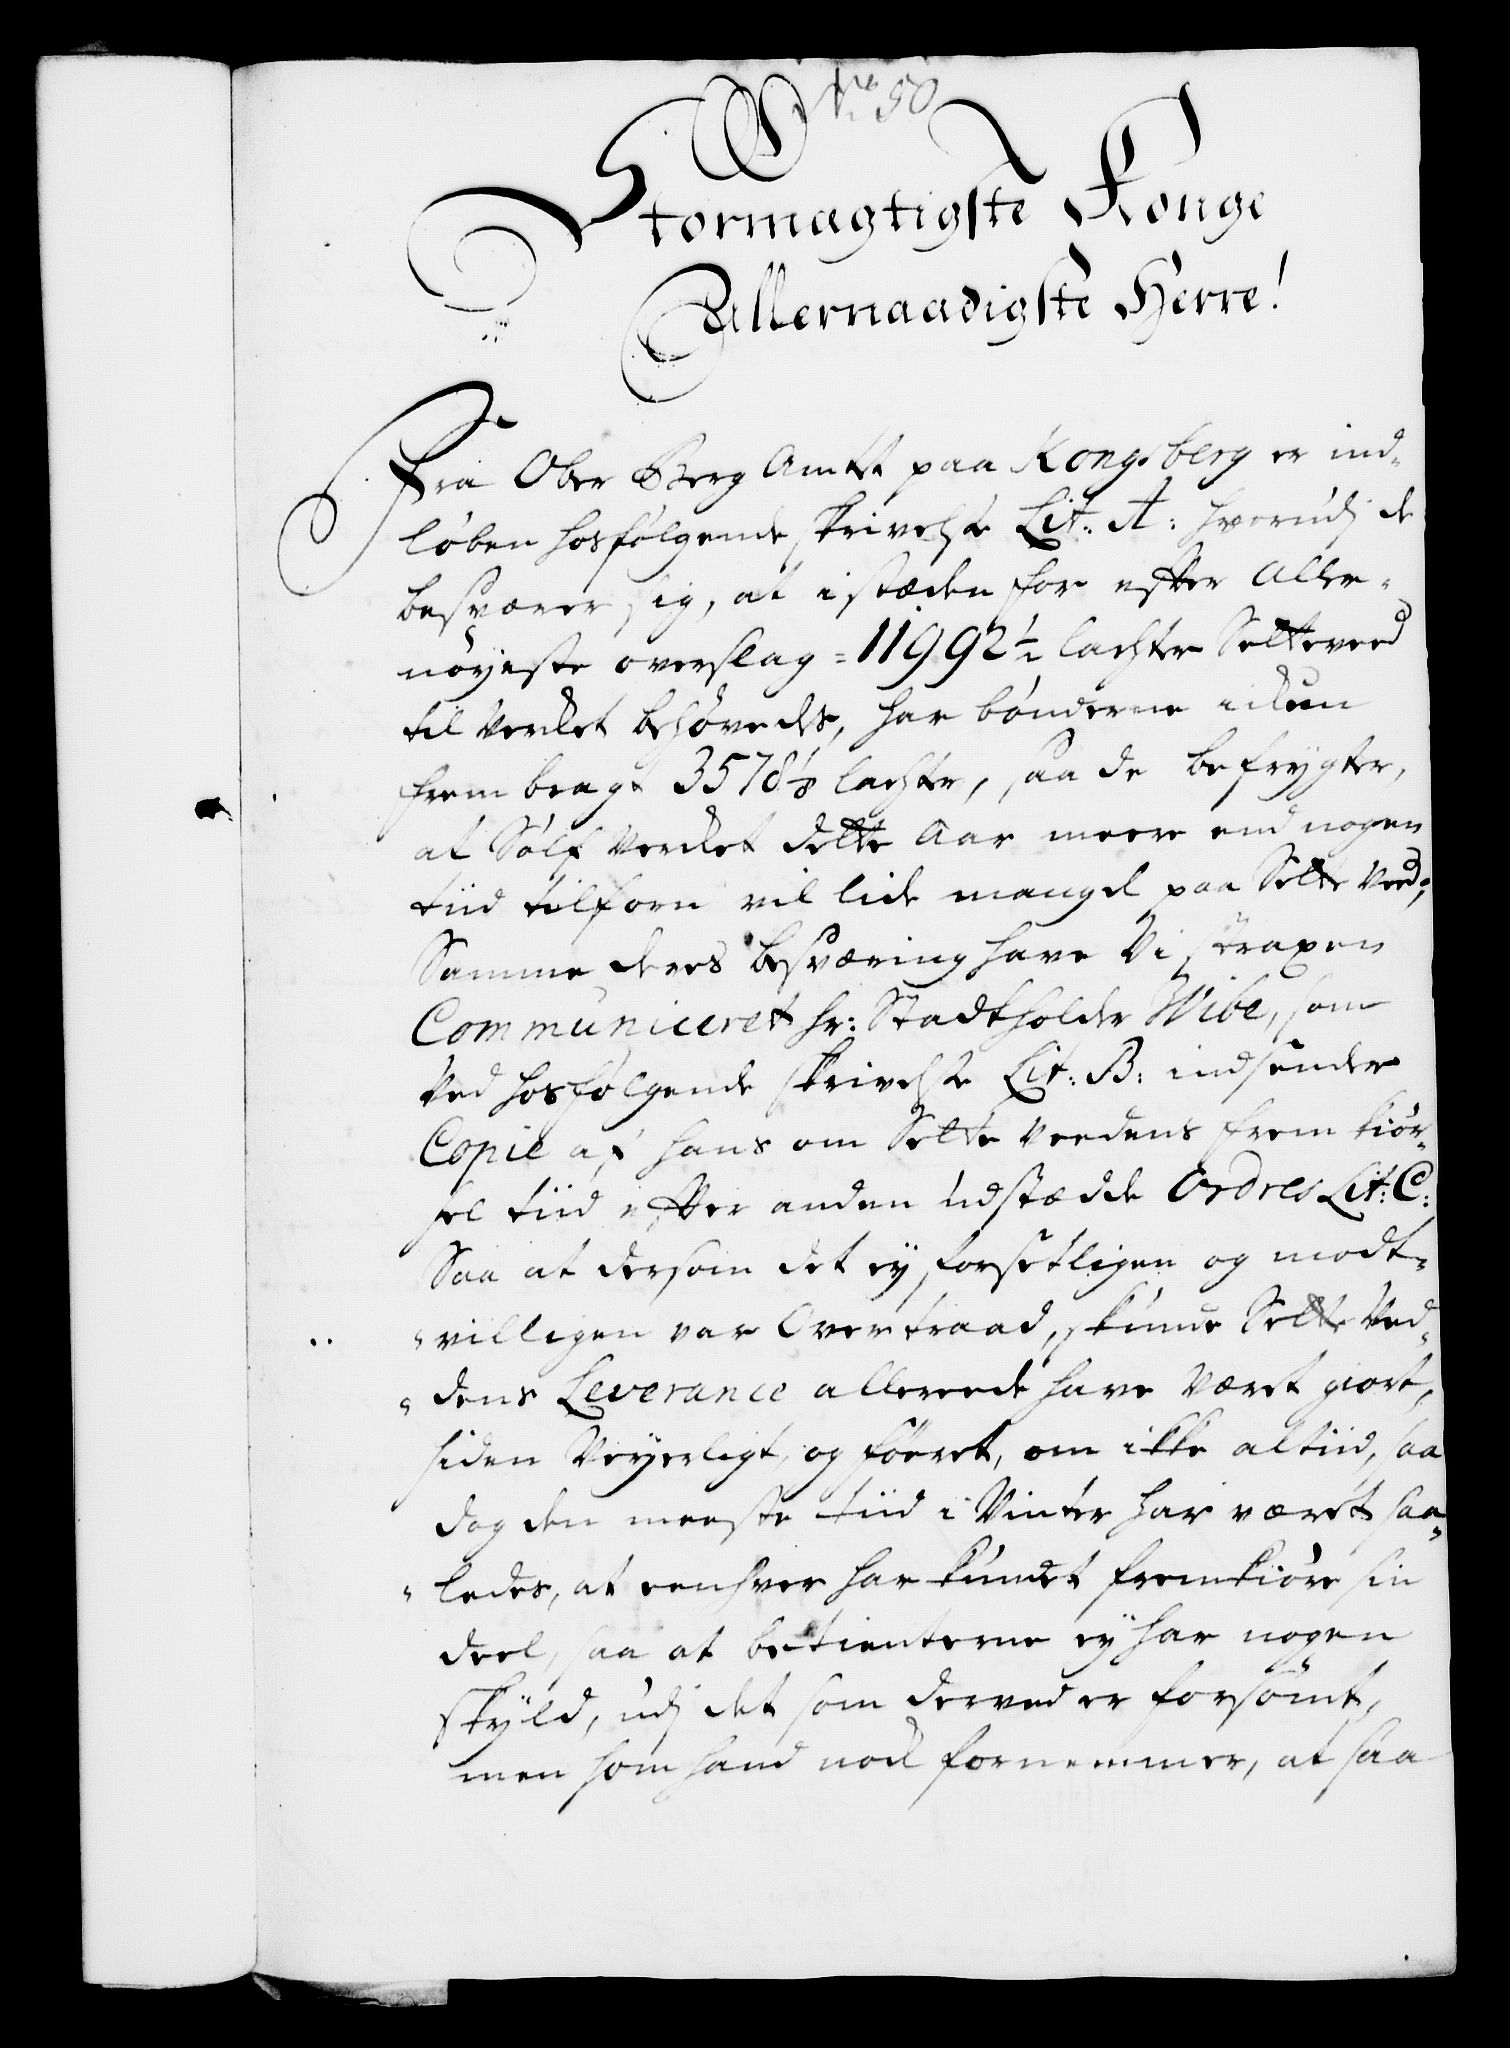 No 50
Stormægtigste Konge
Allernaadigste Herre!
Fra Ober Berg Amtet paa Kongsberg er ind-
löben hosfölgende skrivelse Lit: A: hvorudj de
besværer sig, at i stæden for efter Aller-
nöyeste overslag = 11992½ lachter Setteveed
til Verket behövedes, har bönderne ikkun
frem bragt 3578⅛ lachter, saa de befrygter,
at Sölf Verket dette Aar meere end nogen
tiid tilforn vil lide mangel paa Sette Veed;
Samme deres besværing have Vi straxen
Communiceret hr: Stadtholder Wibe, som
Ved hosfölgende skrivelse Lit: B: indsender
Copie af hans om Sette Veedens frem kiör-
sel tiid efter anden Udstædde Ordres Lit: C:
Saa at dersom det ey forsetligen og modt-
villigen var Overtraad, kunde Sette Ved-
dens Leverance allereede have været giort,
siden Veyerligt, og föeret, om ikke altiid, saa
dog den meeste tiid i Vinter har været saa-
ledes, at eenhver har kundet fremkiöre sin
deel, saa at betienterne ey har nogen
skyld, udj det som derved er forsömt,
men som hand nok fornemmer, at saa